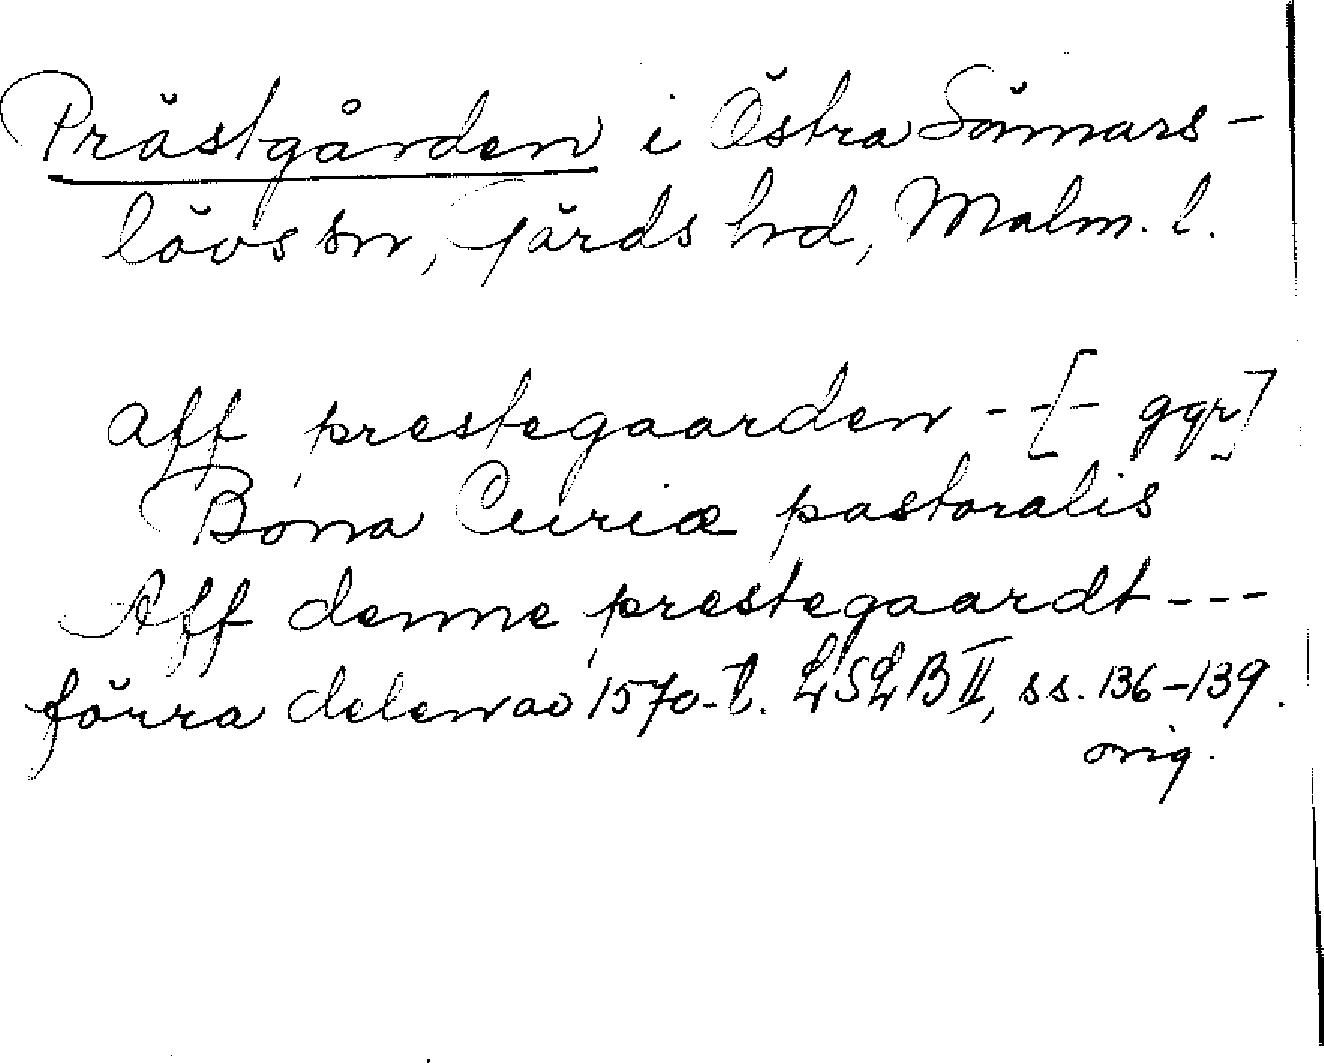 Prästgården i Östra Sönnars-
lövs sn, Gärds hrd, Malm. l.
aff prestegaarden - - - [ggr]
Bona Curiæ pastoralis
Aff denne prestegaardt ---
förra delen av 1570-t. LSLB II, ss. 136-139.
orig.